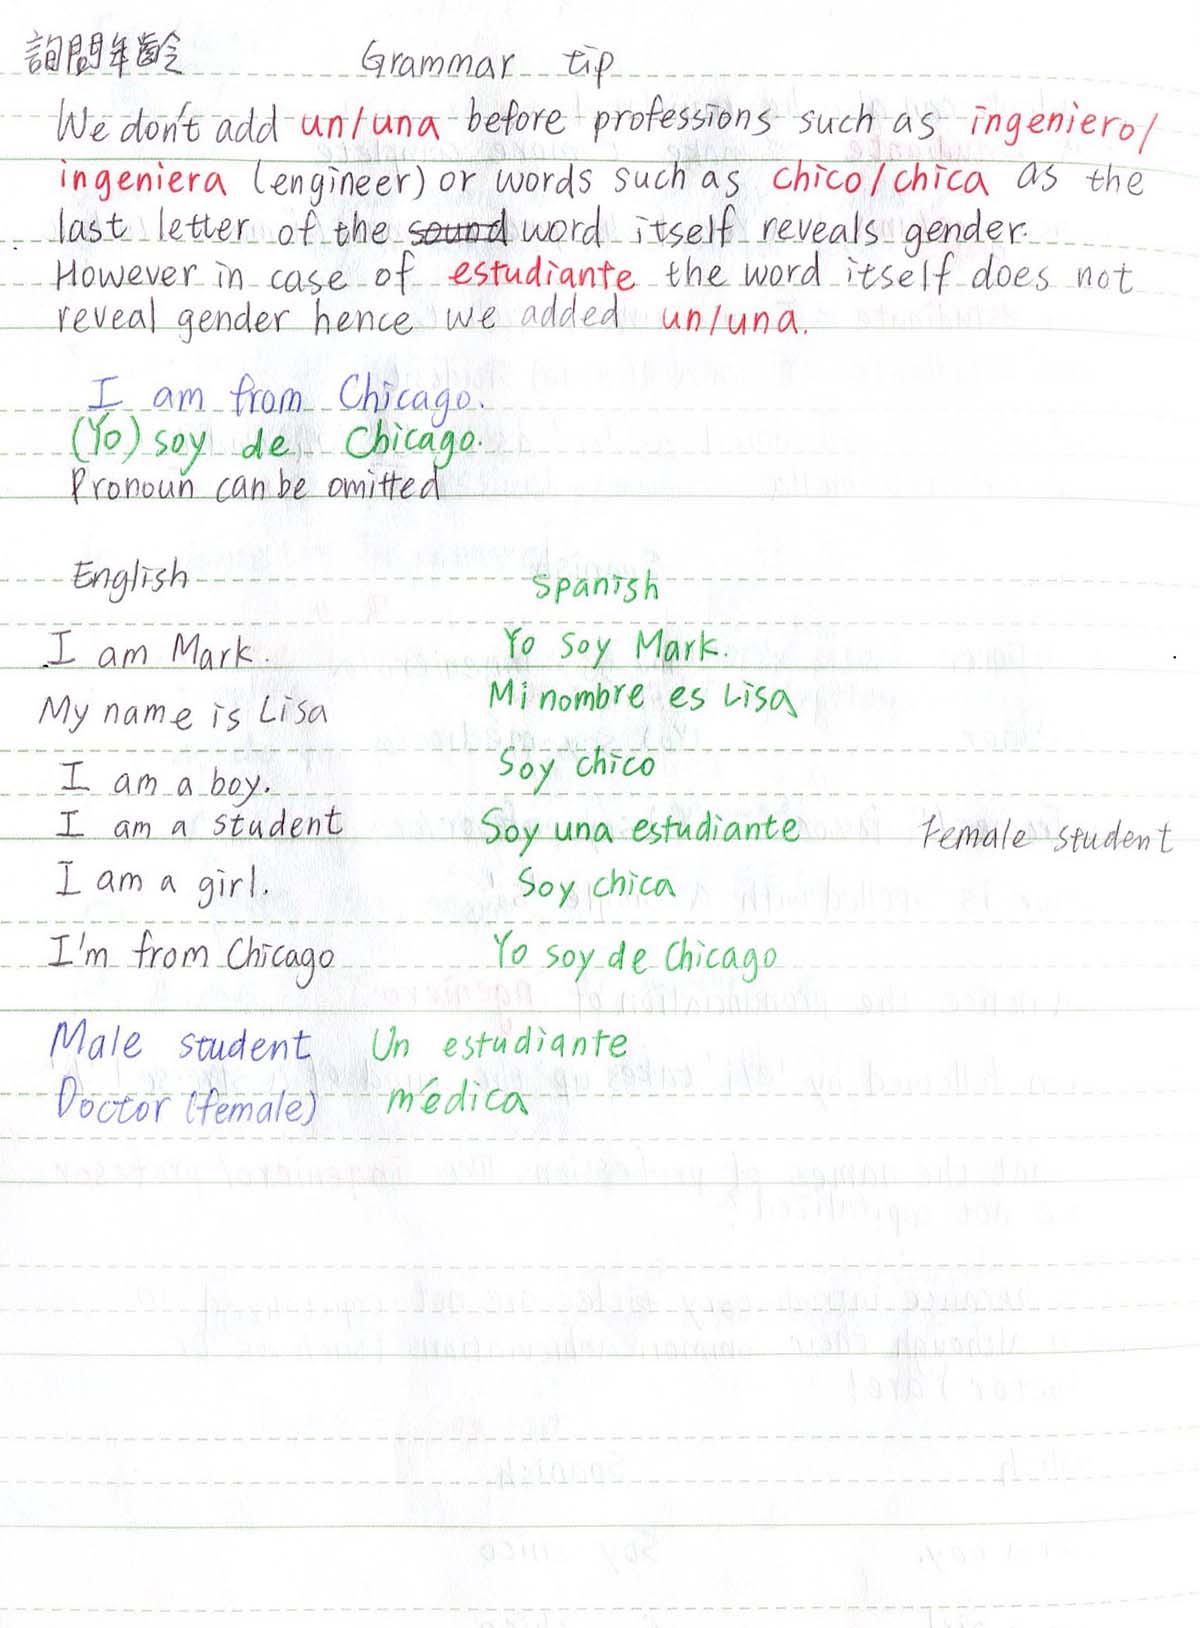 詢問年齡 Grammar tip
We don't add un/una before professions such as ingeniero/
ingeniera (engineer) or words such as chico/chica as the
last letter of the sound word itself reveals gender.
However in case of estudiante the word itself does not
reveal gender hence we added un/una.
I am from Chicago.
(Yo) soy de Chicago.
Pronoun can be omitted
English Spanish
I am Mark. Yo soy Mark.
My name is Lisa Mi nombre es Lisa
I am a boy. Soy chico
I am a student Soy una estudiante Female student
I am a girl. Soy chica
I'm from Chicago Yo soy de Chicago
Male student Un estudiante
Doctor (female) médica